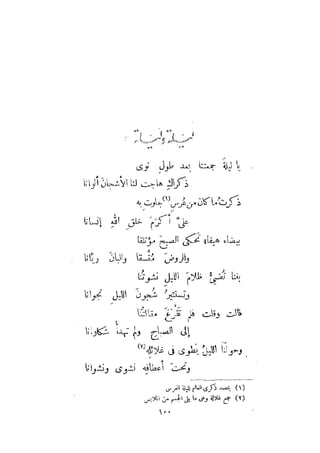 ليلة وليلة
يا ليلةً جمعتنا بعد طول نوى
ذكراكِ هاجت لنا الأشجانَ ألوانا
ذكرتُ ما كان من عُرسٍ (١) جلوتِ به
علىَّ أكرمَ خلقِ اللهِ إنسانا
بيضاء هيفاء تحكى الصبحَ مؤتلقا
والروضَ مُتَّسقا والبانَ ريَّانا
بتنا تُضىءُ ظلامَ الليلِ نشوتُنا
وتستثيرُ شجونَ الليلِ نجوانا
قالت وقلت فلم تفرغ مقالتُنا
إلى الصباحِ ولم تهدأ شكاوانا
وحولَنا الليلُ يَطوى فى غلائلِه (٢)
وتحت أعطافِه نشوى ونشوانا
(١) يقصد ذكرى العالم بليلة العرس
(٢) جمع غلالة وهى ما يلى الجسم من الملابس
١٠٠